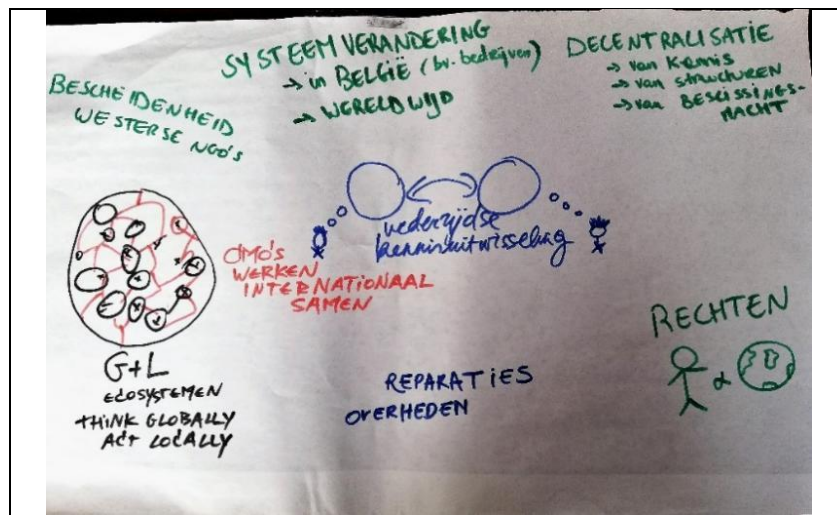 BESCHEIDENHEID
WESTERSE NGO'S
SYSTEEMVERANDERING
→ in BELGIË (bv. bedrijven)
→ WERELDWIJD
DECENTRALISATIE
→ van Kennis
→ van STRUCTUREN
→ van BESLISSINGS-
MACHT
wederzijdse
kennisuitwisseling
OMO'S
WERKEN
INTERNATIONAAL
SAMEN
G+L
ECOSYSTEMEN
THINK GLOBALLY
ACT LOCALLY
REPARATIES
OVERHEDEN
RECHTEN